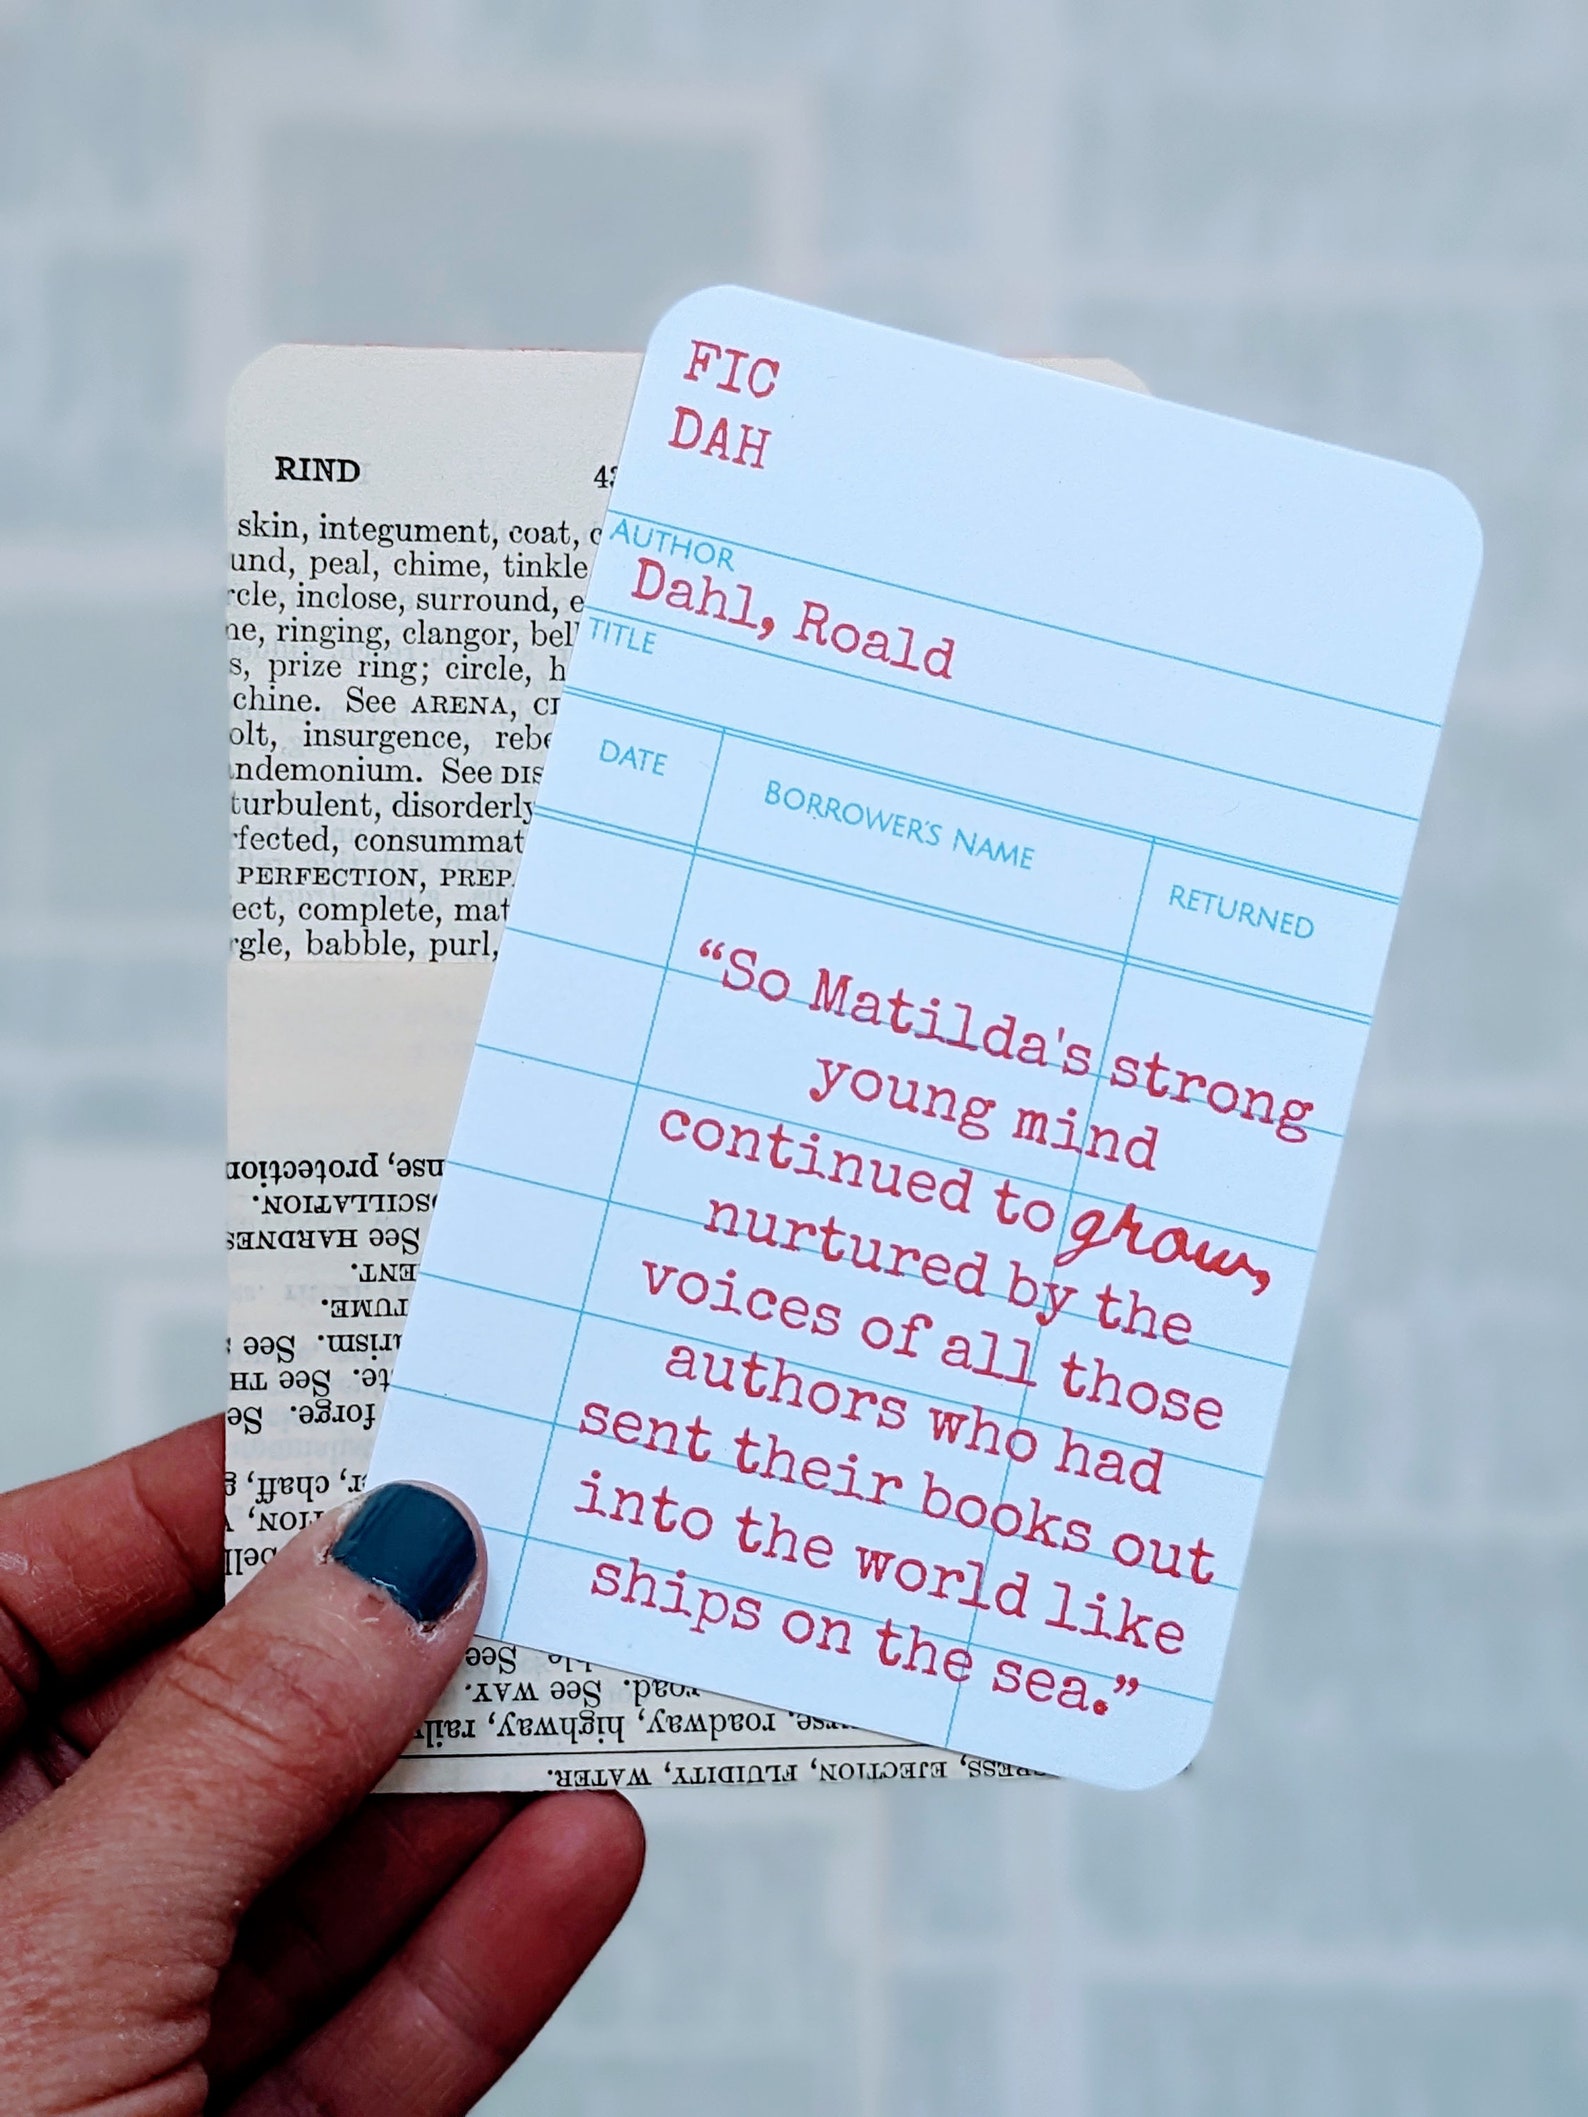 RIND
skin, integument, coat,
peal, chime, tinkle
inclose, surround,
ringing, clangor,
prize ring; circle,
See ARENA,
insurgence,
See
disorderly
consummat
PERFECTION, PREP
complete,
babble, purl,
protection
OSCILLATION.
See HARDNES
See
See TH
forge.
chaff,
See
road. See WAY.
roadway, highway, rail
EJECTION, FLUIDITY, WATER.
FIC
DAH
AUTHOR
Dahl, Roald
TITLE
DATE BORROWER'S NAME RETURNED
“So Matilda's strong
young mind
continued to grow,
nurtured by the
voices of all those
authors who had
sent their books out
into the world like
ships on the sea.”